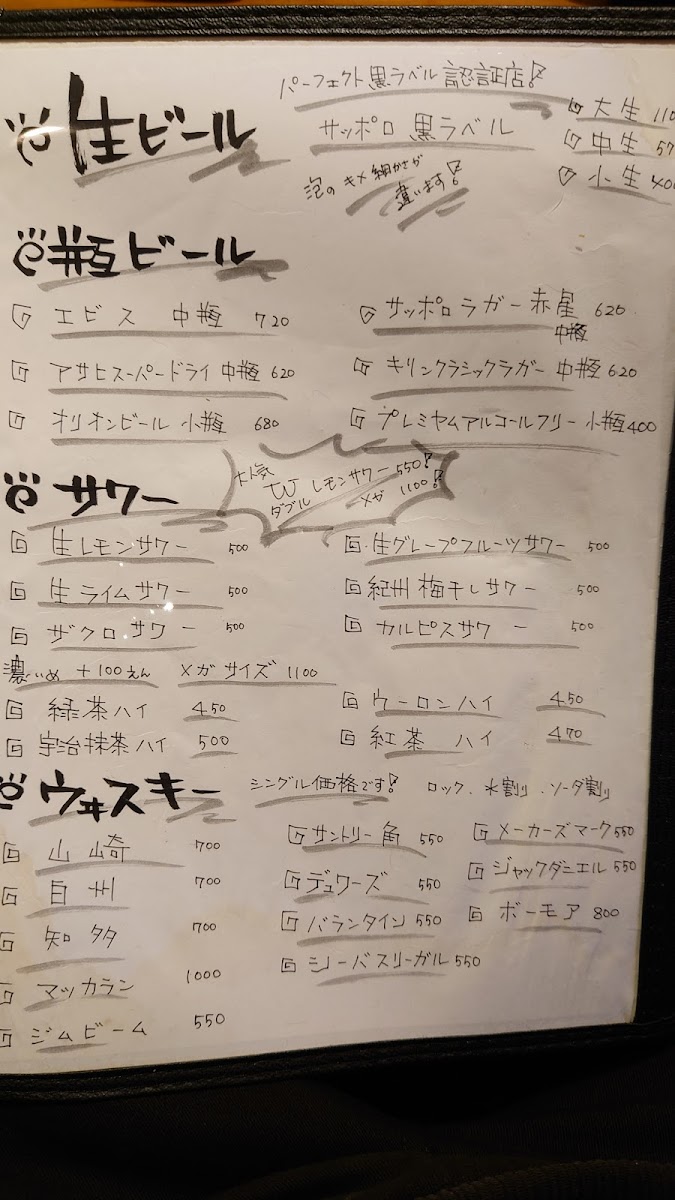 生ビール
パーフェクト黒ラベル認証店!
サッポロ 黒ラベル
泡のキメ細かさが
違います!
大生 110
中生 57
小生 400
瓶ビール
エビス 中瓶 720
サッポロラガー赤星 620
中瓶
アサヒスーパードライ中瓶 620
キリンクラシックラガー 中瓶 620
オリオンビール 小瓶 680
プレミヤムアルコールフリー 小瓶 400
サワー
大人気
W レモンサワー 550!
ダブル メガ 1100!
生レモンサワー 500
生グレープフルーツサワー 500
生ライムサワー 500
紀州梅干しサワー 500
ザクロサワー 500
カルピスサワー 500
濃いめ +100えん メガサイズ 1100
緑茶ハイ 450
ウーロンハイ 450
宇治抹茶ハイ 500
紅茶 ハイ 470
ウヰスキー
シングル価格です! ロック、水割り、ソーダ割り
山崎 700
サントリー角 550
メーカーズマーク 550
白州 700
デュワーズ 550
ジャックダニエル 550
知多 700
バランタイン 550
ボーモア 800
マッカラン 1000
シーバスリーガル 550
ジムビーム 550